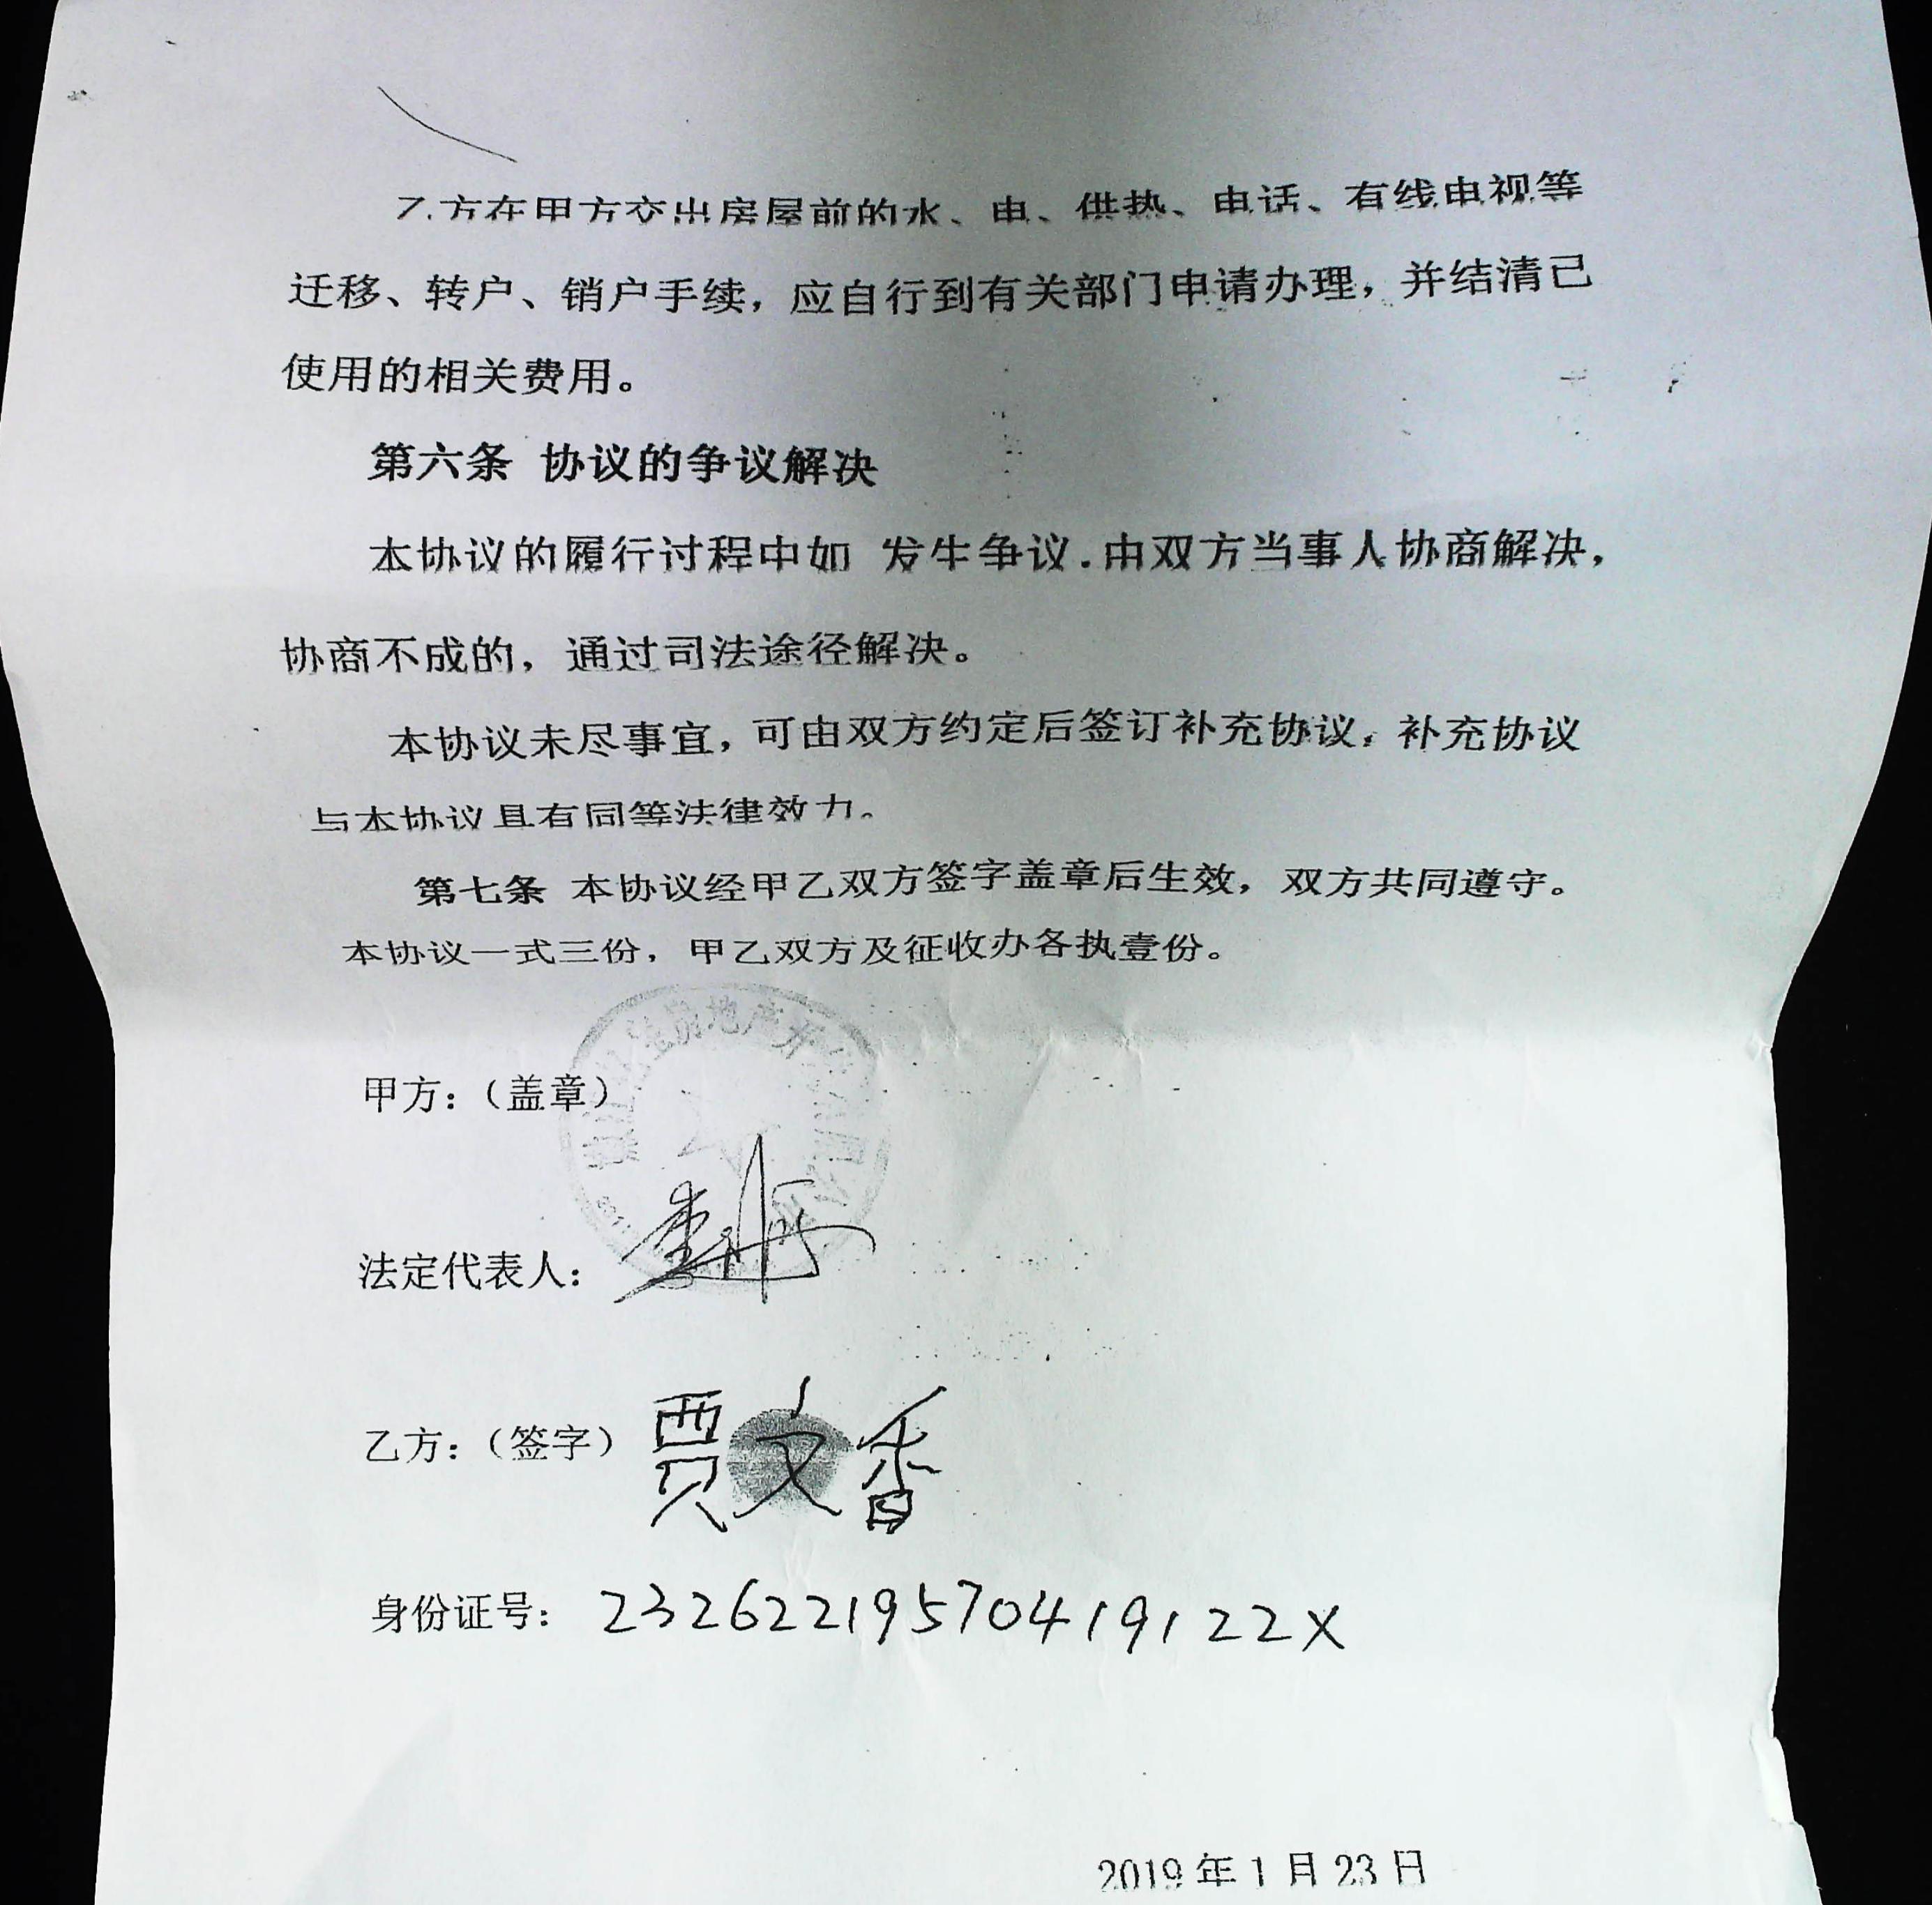 乙方在甲方交出房屋前的水、电、供热、电话、有线电视等
迁移、转户、销户手续，应自行到有关部门申请办理，并结清已
使用的相关费用。
第六条 协议的争议解决
本协议的履行过程中如 发生争议.由双方当事人协商解决，
协商不成的，通过司法途径解决。
本协议未尽事宜，可由双方约定后签订补充协议，补充协议
与本协议具有同等法律效力。
第七条 本协议经甲乙双方签字盖章后生效，双方共同遵守。
本协议一式三份，甲乙双方及征收办各执壹份。
房地产开
甲方：（盖章）
法定代表人：
乙方：（签字）贾文香
身份证号：23262219570419122X
2019年1月23日